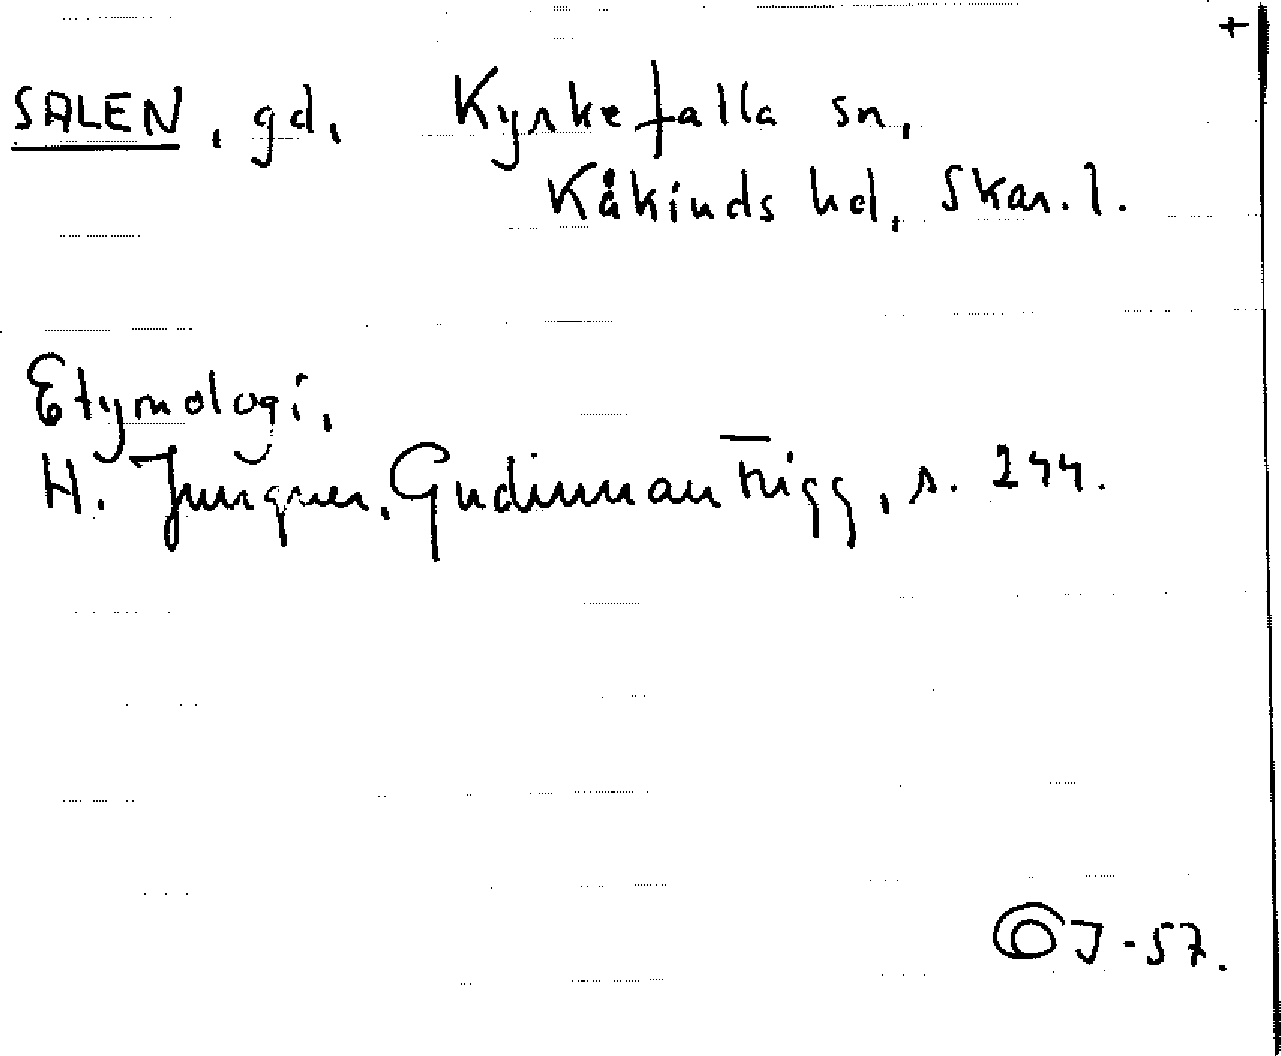 +
SALEN, gd, Kyrkefalla sn,
Kåkinds hd, Skar. l.
Etymologi,
H. Jungner, Gudinnan Frigg, s. 244.
J-57.